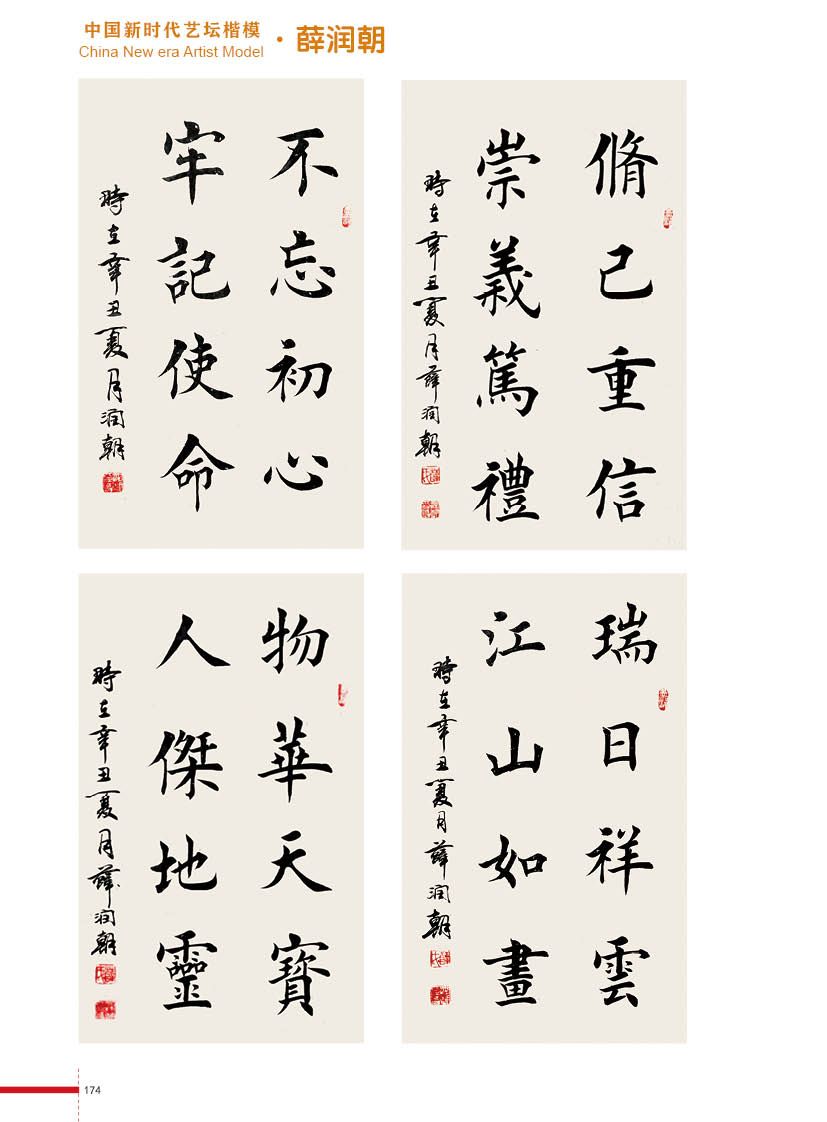 中国新时代艺坛楷模
China New era Artist Model
·薛润朝
不忘初心
牢記使命
時在辛丑夏月润朝
脩己重信
崇義篤禮
時在辛丑夏月薛润朝
物華天寶
人傑地靈
時在辛丑夏月薛润朝
瑞日祥雲
江山如畫
時在辛丑夏月薛润朝
174